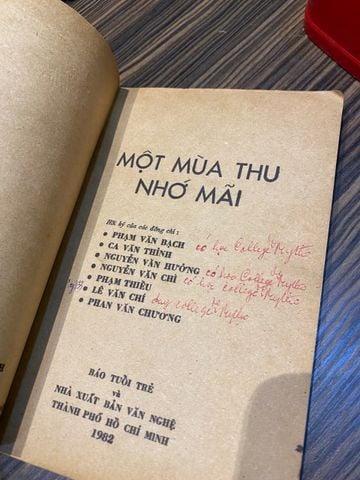 MỘT MÙA THU
NHỚ MÃI
Hồi ký của các đồng chí :
• PHẠM VĂN BẠCH có học College Mytho
• CA VĂN THỈNH
• NGUYỄN VĂN HƯỞNG có học College Mytho
• NGUYỄN VĂN CHÌ có học College Mytho
• PHẠM THIỀU
• LÊ VĂN CHÍ dạy collège Mytho
• PHAN VĂN CHƯƠNG
BÁO TUỔI TRẺ
và
NHÀ XUẤT BẢN VĂN NGHỆ
THÀNH PHỐ HỒ CHÍ MINH
1982